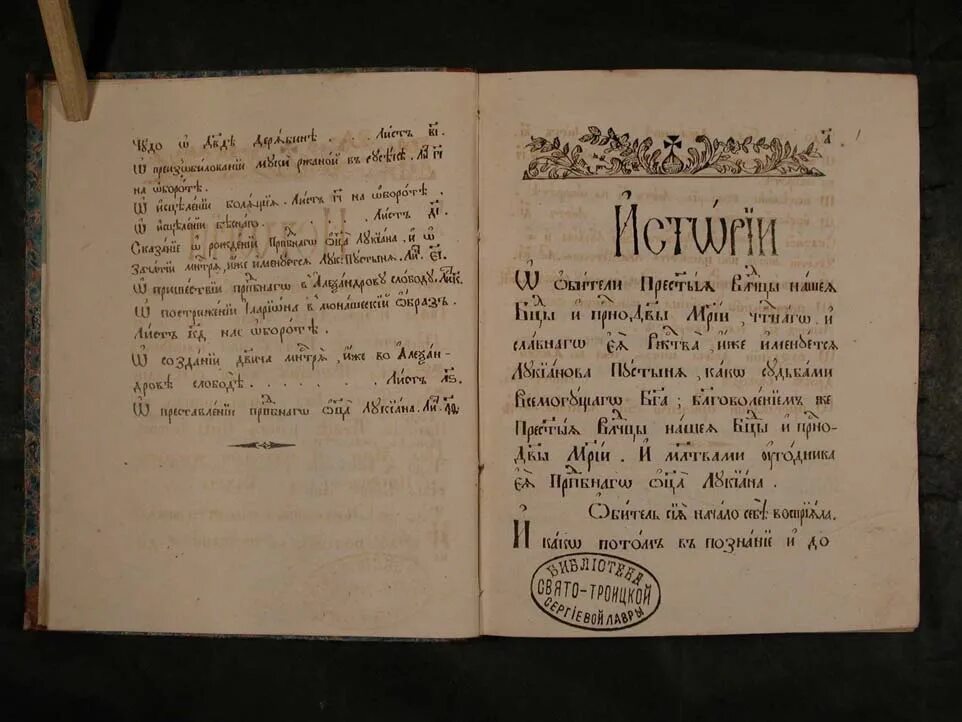 Чудо ѿ Дв҃дѣ Дерѧбинѣ . . Листъ в҃і
Ѡ преизѡбиловании муки ржаной въ сусѣцѣ . Ли г҃і
на ѡборотѣ.
Ѡ исцѣленіи болѧщіѧ . Листъ г҃і на ѡборотѣ
Ѡ исцѣленіи бѣснаго . . . . Листъ д҃і .
Сказаніе ѡ рожденіи Прпⷣбнаго ѻц҃а Лукіана , и ѡ
Зачатіи мнⷭтрѧ , иже именуетсѧ Лук: Пустынѧ . Ли. є҃і
Ѡ пришествіи прпⷣбнагѡ в Алеѯандрову слободу . Ли. к
Ѡ постриженіи Іларіѡна в монашескій ѻбразъ .
Листъ к҃д на ѡборотѣ .
Ѡ созданіи двⷣича мнⷭтрѧ , иже во Алеѯан-
дровѣ слободѣ . . . . . . . Листъ
Ѡ преставленіи прпⷣбнагѡ ѻц҃а Лукіана . Ли.
а҃
Исторіи
Ѡ ѻбители Престⷭыѧ Влⷣчцы нашеѧ
Бцⷣы и прнодв҃ы Мр҃іи , чтⷭнагѡ , и
славнагѡ єѧ Ржⷭтва , иже именуетсѧ
Лукіанова Пустынѧ , какѡ судьбами
Всемогущагѡ Бг҃а ; благоволеніемъ же
Престⷭыѧ Влⷣчцы нашеѧ Бцⷣы и прно-
дв҃ы Мр҃іи . И мл҃твами огодника
єѧ Прпⷣбнагѡ ѻц҃а Лукіана .
Ѻбитель сіѧ начало себѣ воспріѧла.
И какѡ потомъ въ познаніе и до
БИБЛІОТЕКА
СВЯТО-ТРОИЦКОЙ
СЕРГІЕВОЙ ЛАВРЫ